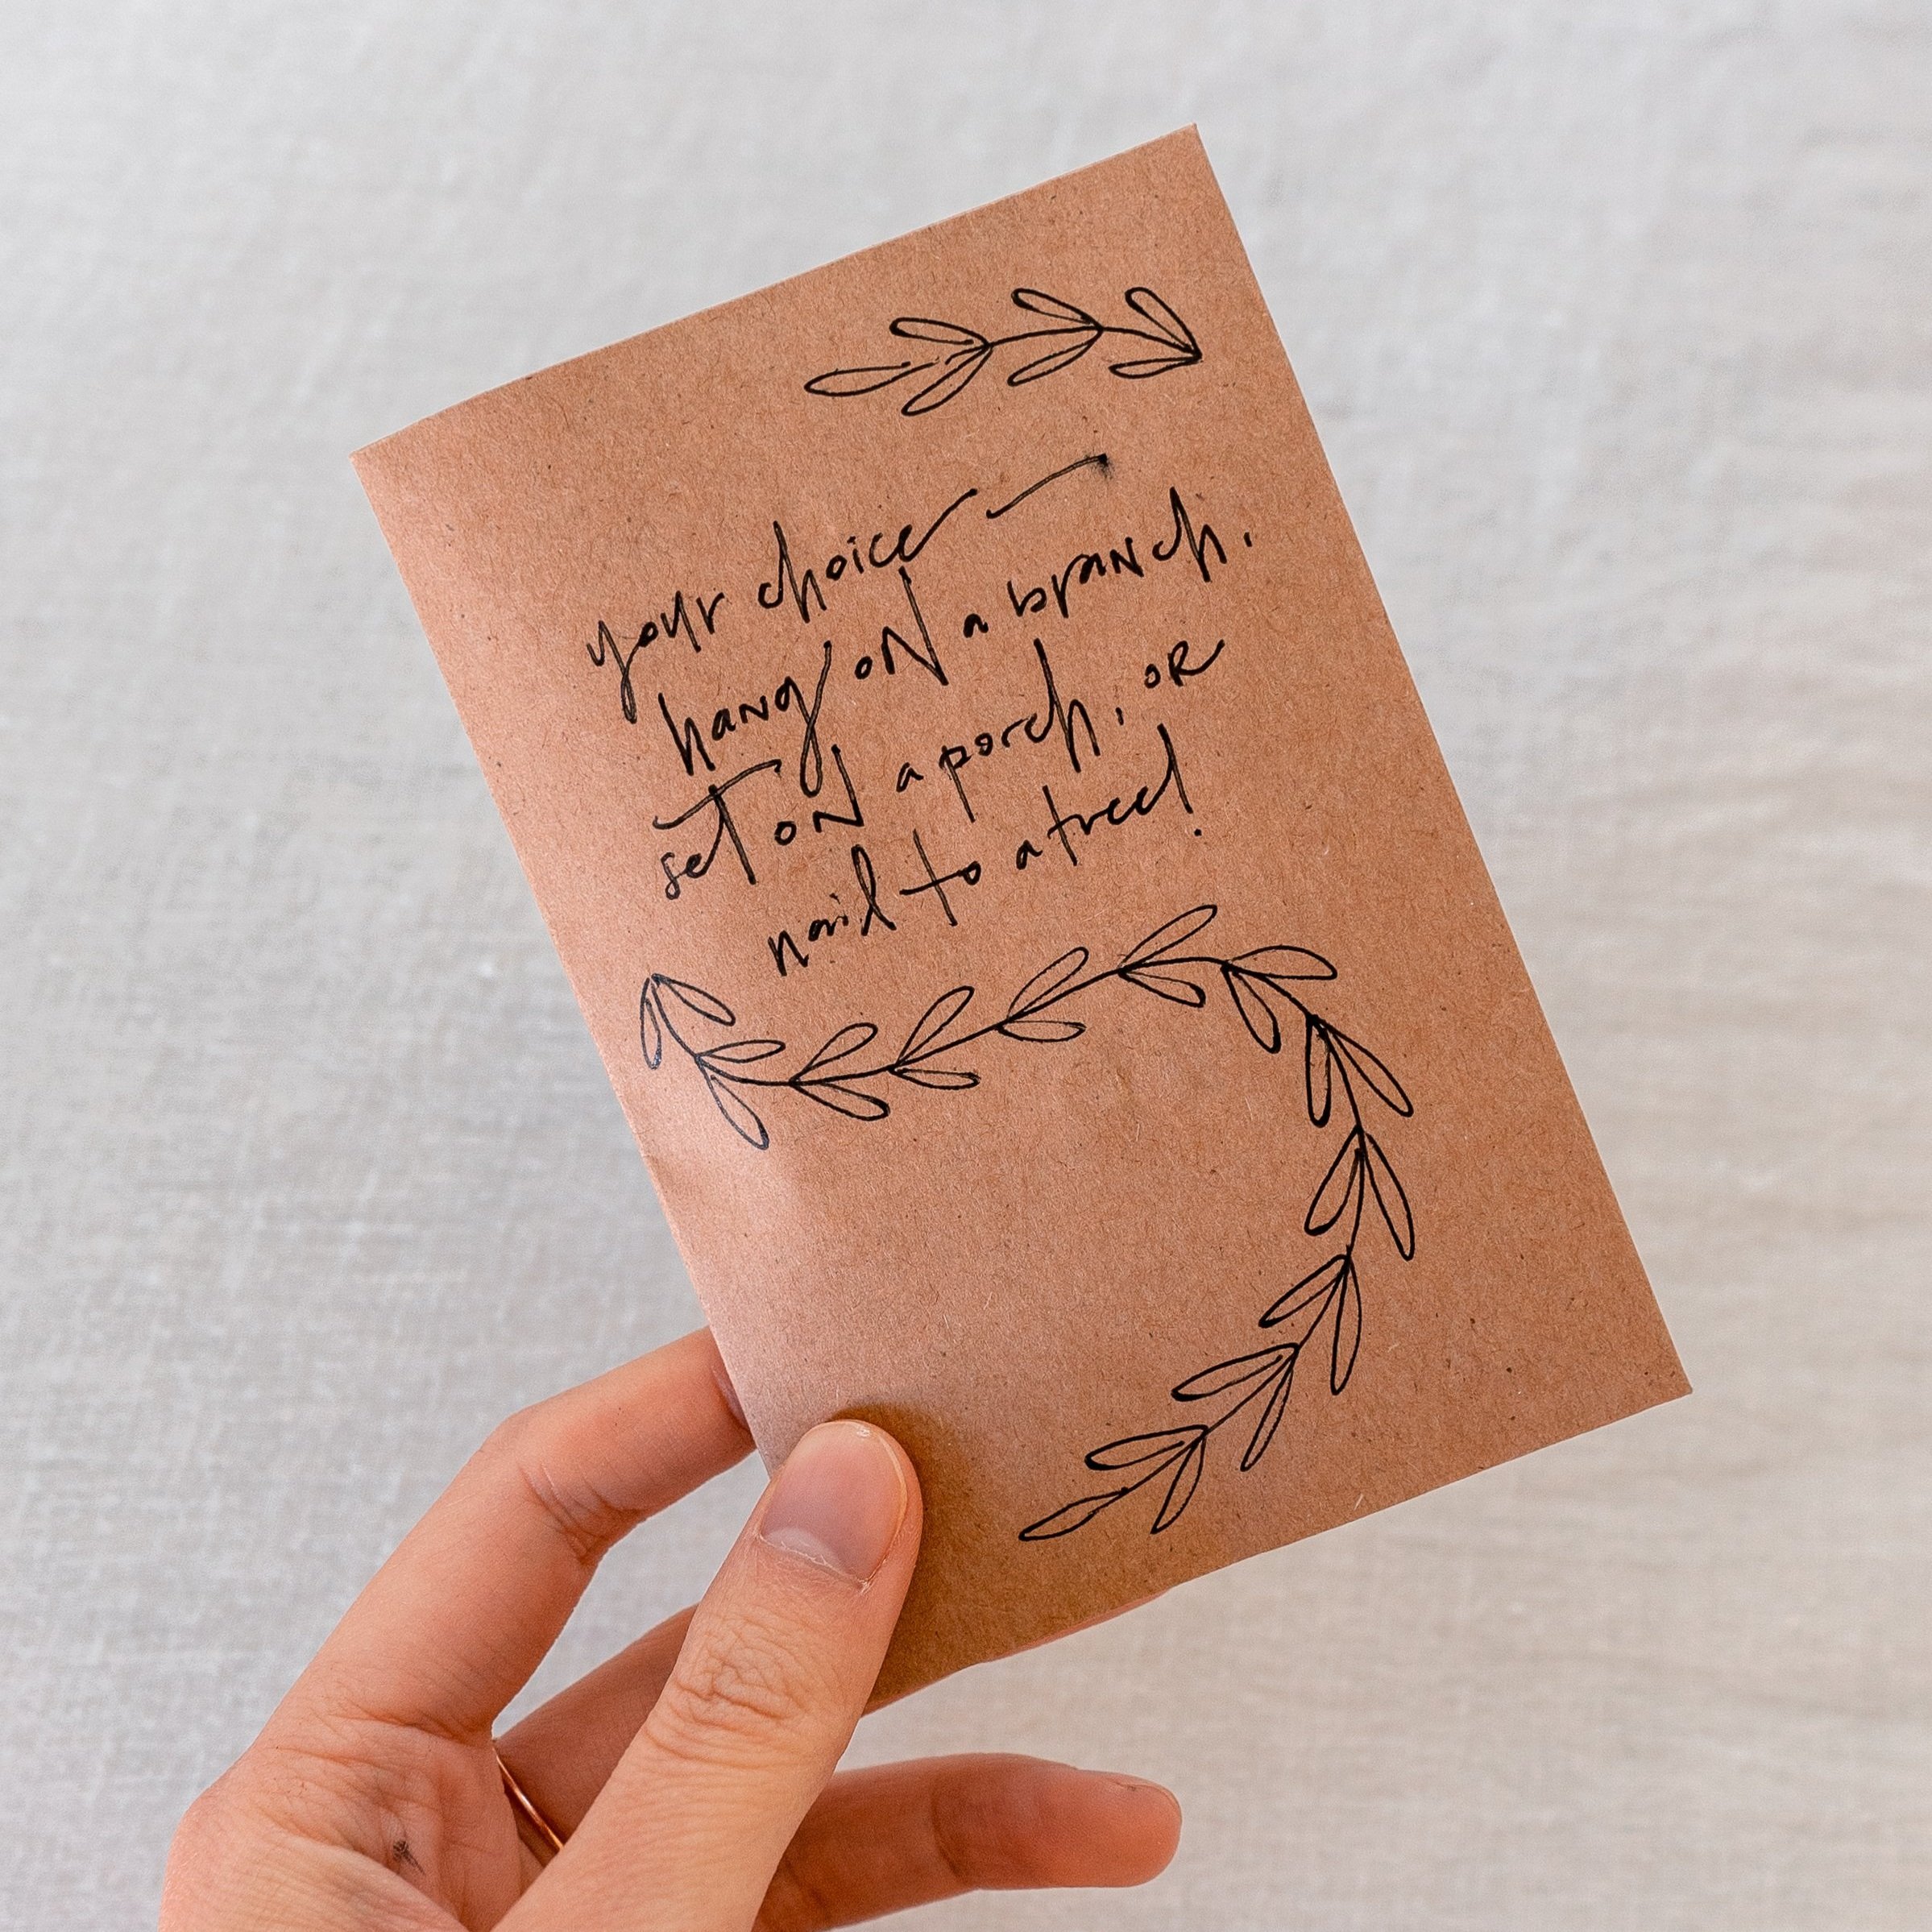 your choice —
hang on a branch,
set on a porch, or
nail to a tree!